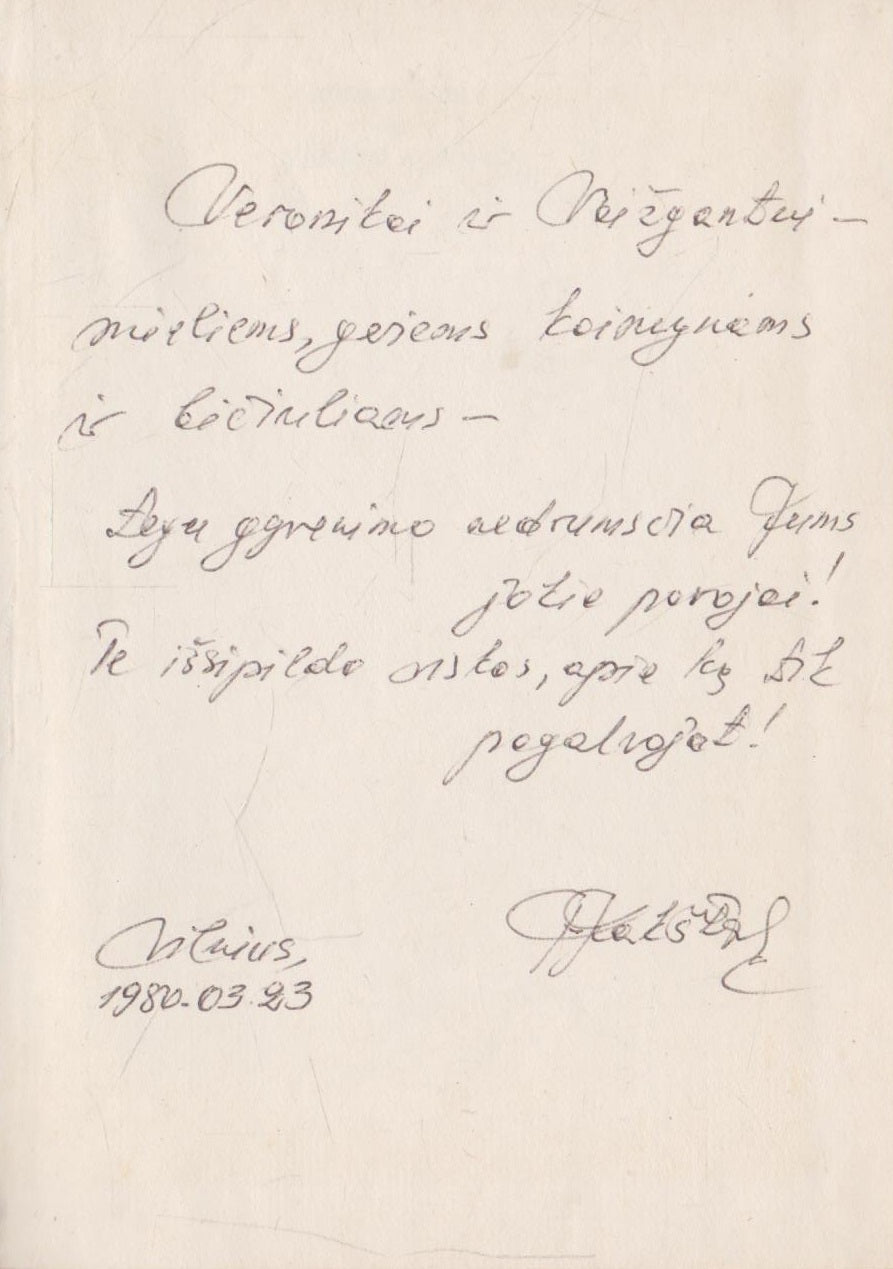 Veronikai ir Vaižgantui —
mieliems, geriems kaimynams
ir bičiuliams —
tegu gyvenimo nedrumsčia Jums
jokie pavojai!
Te išsipildo viskas, apie ką tik
pagalvojat!
Vilnius,
1980.03.23